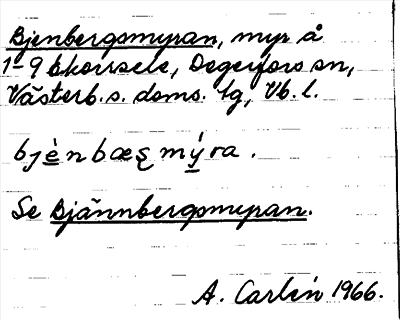 Bjenbergsmyran, myr å
1-9 Ekorrsele, Degerfors sn,
Västerb. s. doms. lg, Vb. l.
bjènbæʂmýra.
Se Bjännbergsmyran.
A. Carlén 1966.